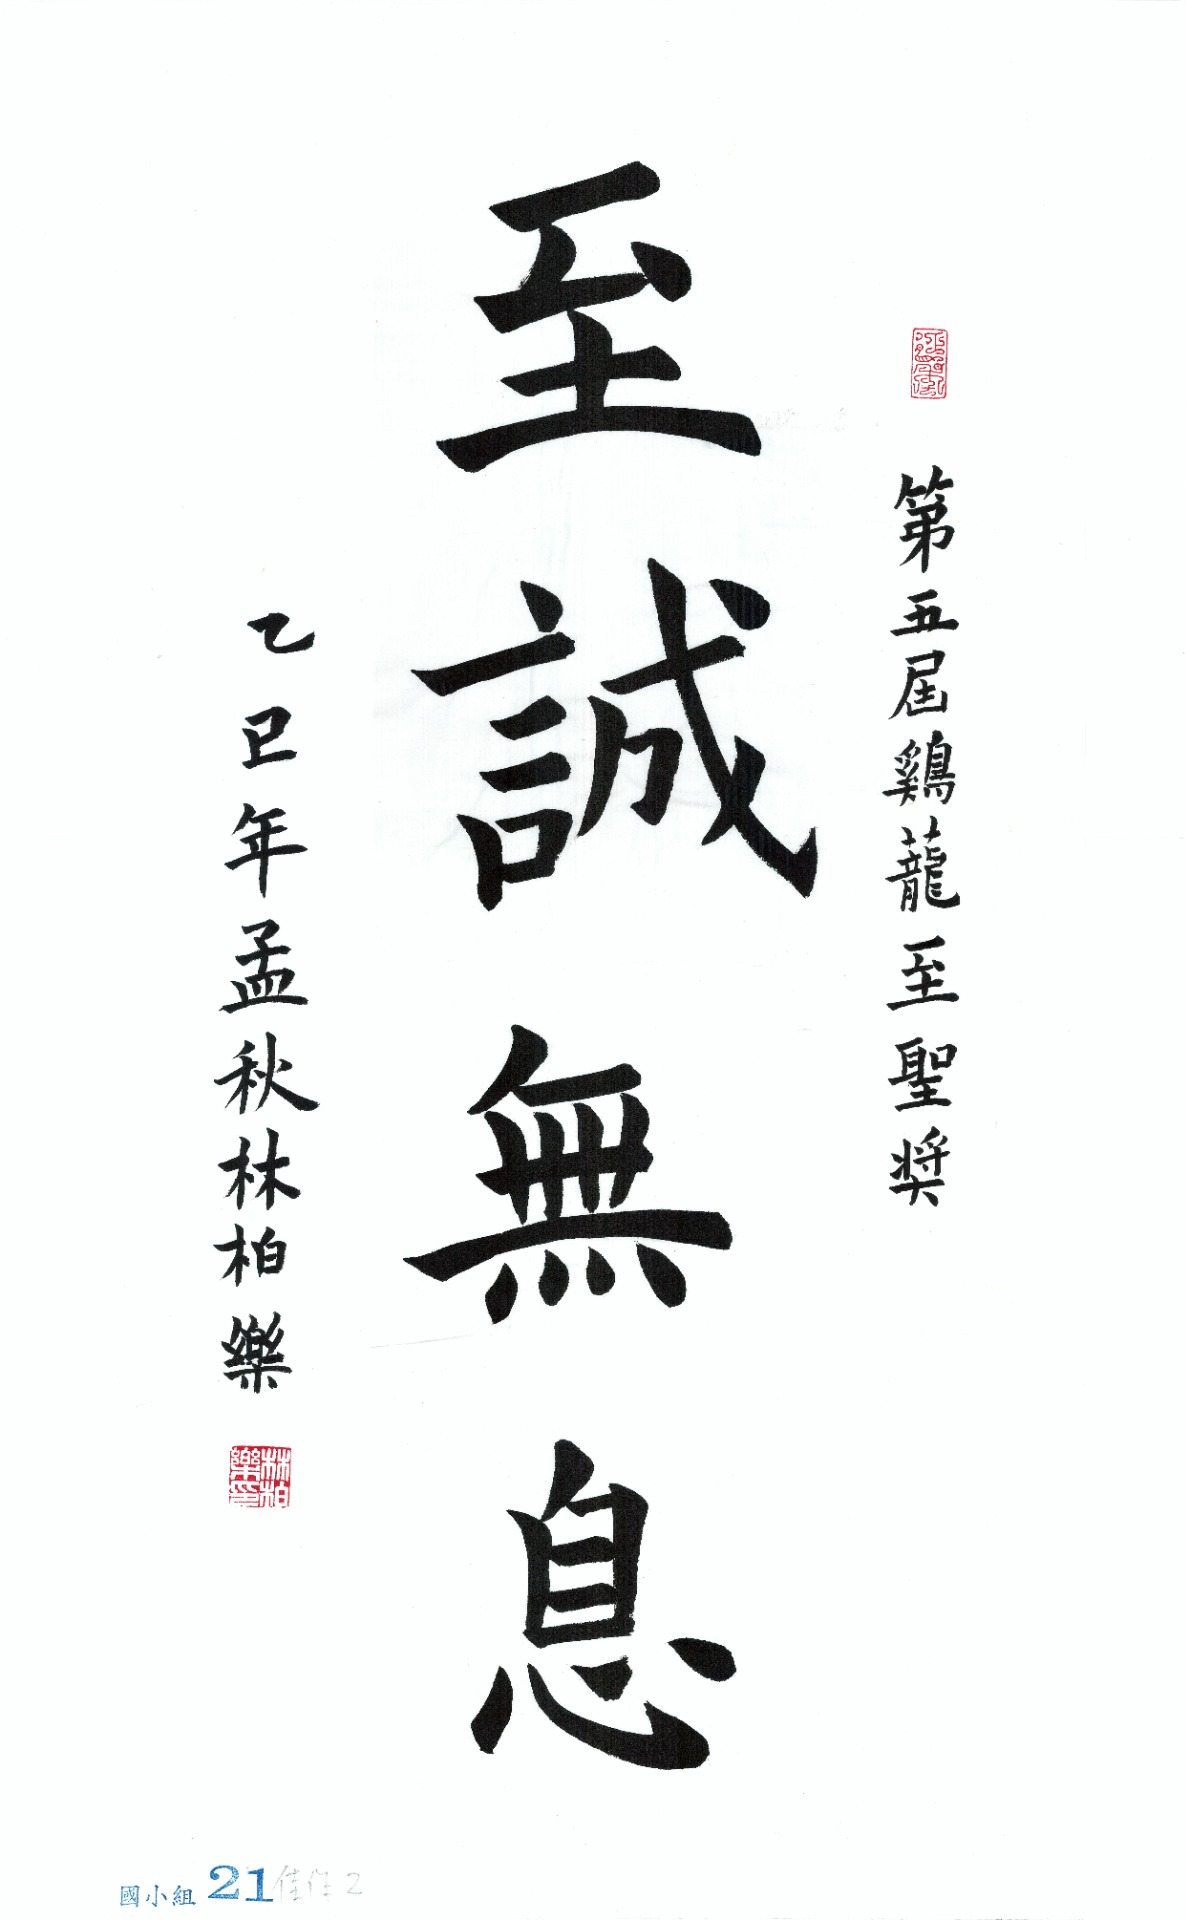 第五屆鷄蘢至聖奬
至誠無息
乙巳年孟秋林柏樂
林柏樂印
國小組 21 佳作 2